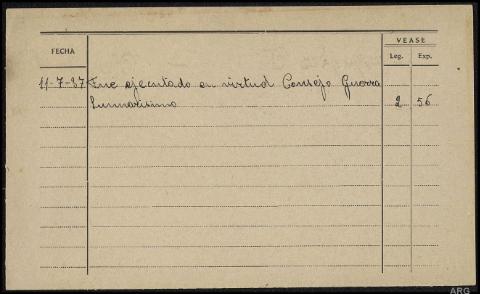 FECHA
VEASE
Leg. Exp.
11-7-37 Fue ejecutado en virtud Consejo Guerra
Sumarisimo 2 56
ARG